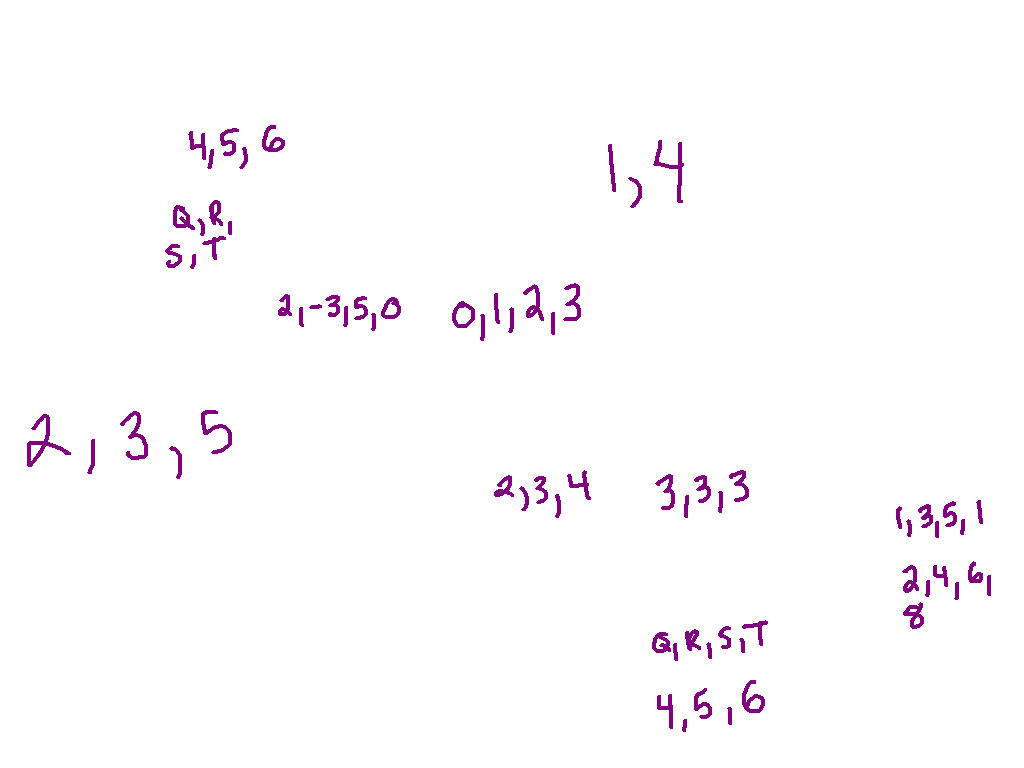 4,5,6
1,4
Q,R,
S,T
2,-3,5,0
0,1,2,3
2,3,5
2,3,4
3,3,3
1,3,5,1
2,4,6,
8
Q,R,S,T
4,5,6